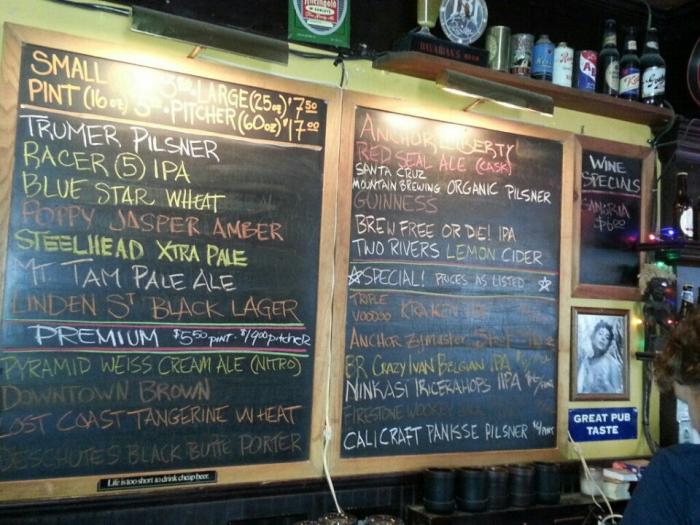 SMALL LARGE (25oz) $7.50
PINT (16oz) PITCHER (60oz) $17.00
TRUMER PILSNER
RACER (5) IPA
BLUE STAR WHEAT
POPPY JASPER AMBER
STEELHEAD XTRA PALE
MT TAM PALE ALE
LINDEN ST BLACK LAGER
PREMIUM $5.50 PINT · $19.00 pitcher
PYRAMID WEISS CREAM ALE (NITRO)
DOWNTOWN BROWN
LOST COAST TANGERINE WHEAT
DESCHUTES BLACK BUTTE PORTER
Life is too short to drink cheap beer.
ANCHOR LIBERTY
RED SEAL ALE (CASK)
SANTA CRUZ
MOUNTAIN BREWING ORGANIC PILSNER
GUINNESS
BREW FREE OR DIE! IPA
TWO RIVERS LEMON CIDER
SPECIAL! PRICES AS LISTED
TRIPLE
VOODOO KRAKEN
ANCHOR ZYMASTER
BR CRAZY IVAN BELGIAN IPA
NINKASI TRICERAHOPS IIPA
FIRESTONE WOOKEY JACK
CALICRAFT PANISSE PILSNER
WINE
SPECIALS
SANGRIA
$6.00
GREAT PUB
TASTE